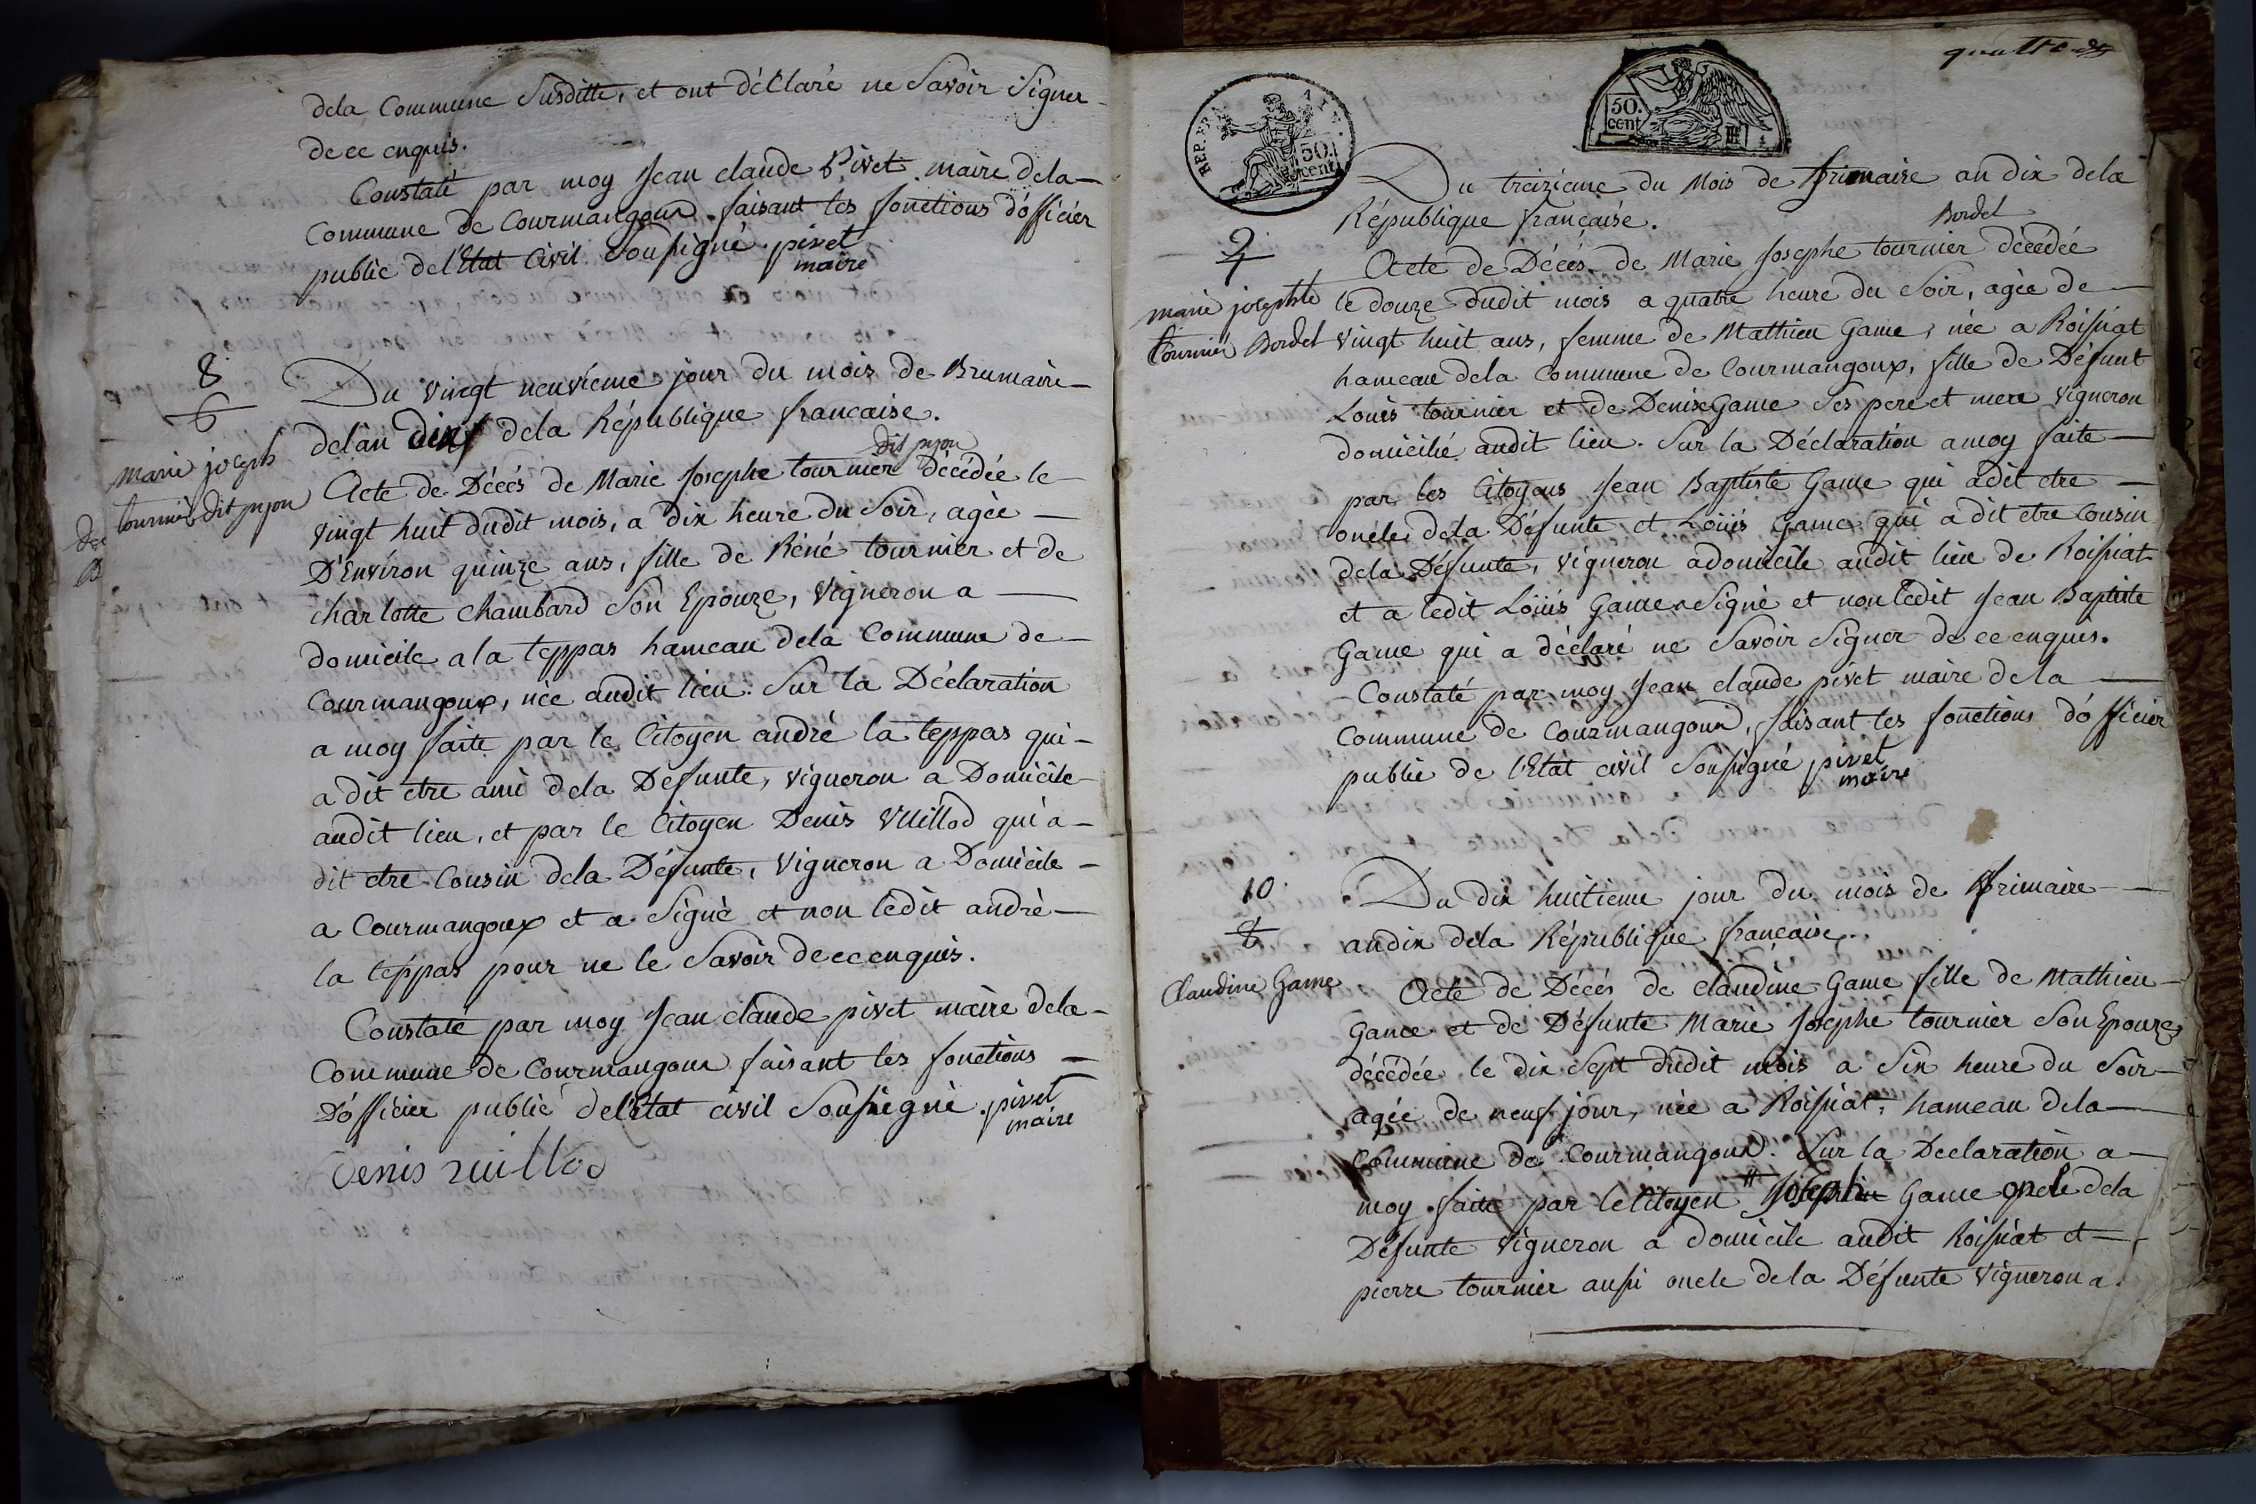 dela Commune Susditte, et ont déClaré ne Savoir Signer
de ce enquis.
Constaté par moy Jean claude Pivet maire dela
Commune de Courmangoux faisant les fonctions d'officier
public del'Etat Civil Soussigné. pivet
maire
8
6
marie joseph
tournier dit pijon
Du vingt neuvieme jour du mois de Brumaire
delan dix dela République francaise.
dit pijon
Acte de Décés de Marie Josephe tournier décédée le
vingt huit dudit mois, a dix heure du Soir, agée
D'Environ quinze ans, fille de Réné tournier et de
charlotte chambard Son Epouze, vigneron a
domicile a la teppas hameau dela Commune de
Courmangoux, née audit lieu. Sur la Déclaration
a moy faite par le Citoyen andré la teppas qui
a dit etre ami dela Défunte, vigneron a Domicile
audit lieu, et par le Citoyen Denis Vuillod qui a
dit etre Cousin dela Défunte, vigneron a Domicile
a Courmangoux et a Signé et non lédit andré
la teppas pour ne le Savoir de ce enquis.
Constaté par moy Jean claude pivet maire dela
Commune de Courmangoux faisant les fonctions
D'officier public del'Etat civil Soussigné. pivet
maire
Denis vuillod
quatre
REP. FRA
50.
cent
50.
cent
Du treizieme du Mois de frimaire an dix dela
République française.
Bordel
9
7
marie josephte
tournier Bordel
Acte de Décés de Marie Josephe tournier décédée
le douze dudit mois a quatre heure du Soir, agée de
vingt huit ans, femme de Mathieu Game, née a Roissiat
hameau dela Commune de Courmangoux, fille de Défunt
Louis tournier et de Denise Game Ses pere et mere vigneron
domicilié audit lieu. Sur la Déclaration a moy faite
par les Citoyens Jean Baptiste Game qui a dit etre
oncle dela Défunte et Loüis Game qui a dit etre Cousin
dela Défunte, vigneron a domicile audit lieu de Roissiat
et a ledit Loüis Game Signé et non lédit Jean Baptiste
Game qui a déclaré ne Savoir Signer de ce enquis.
Constaté par moy Jean claude pivet maire dela
Commune de Courmangoux, faisant les fonctions d'officier
public de l'Etat civil Soussigné pivet
maire
10
Claudine Game
Du dix huitieme jour du mois de frimaire
an dix dela République francaise.
Acte de Décés de claudine Game fille de Mathieu
Game et de Défunte Marie Josephe tournier Son Epouze
décédée le dix Sept dudit mois a Six heure du Soir
agée de neuf jour, née a Roissiat, hameau dela
Commune de Courmangoux. Sur la Declaration a
moy faite par le Citoyen Joseph Game oncle dela
Défunte vigneron a domicile audit Roissiat et
pierre tournier aussi oncle dela Défunte vigneron a